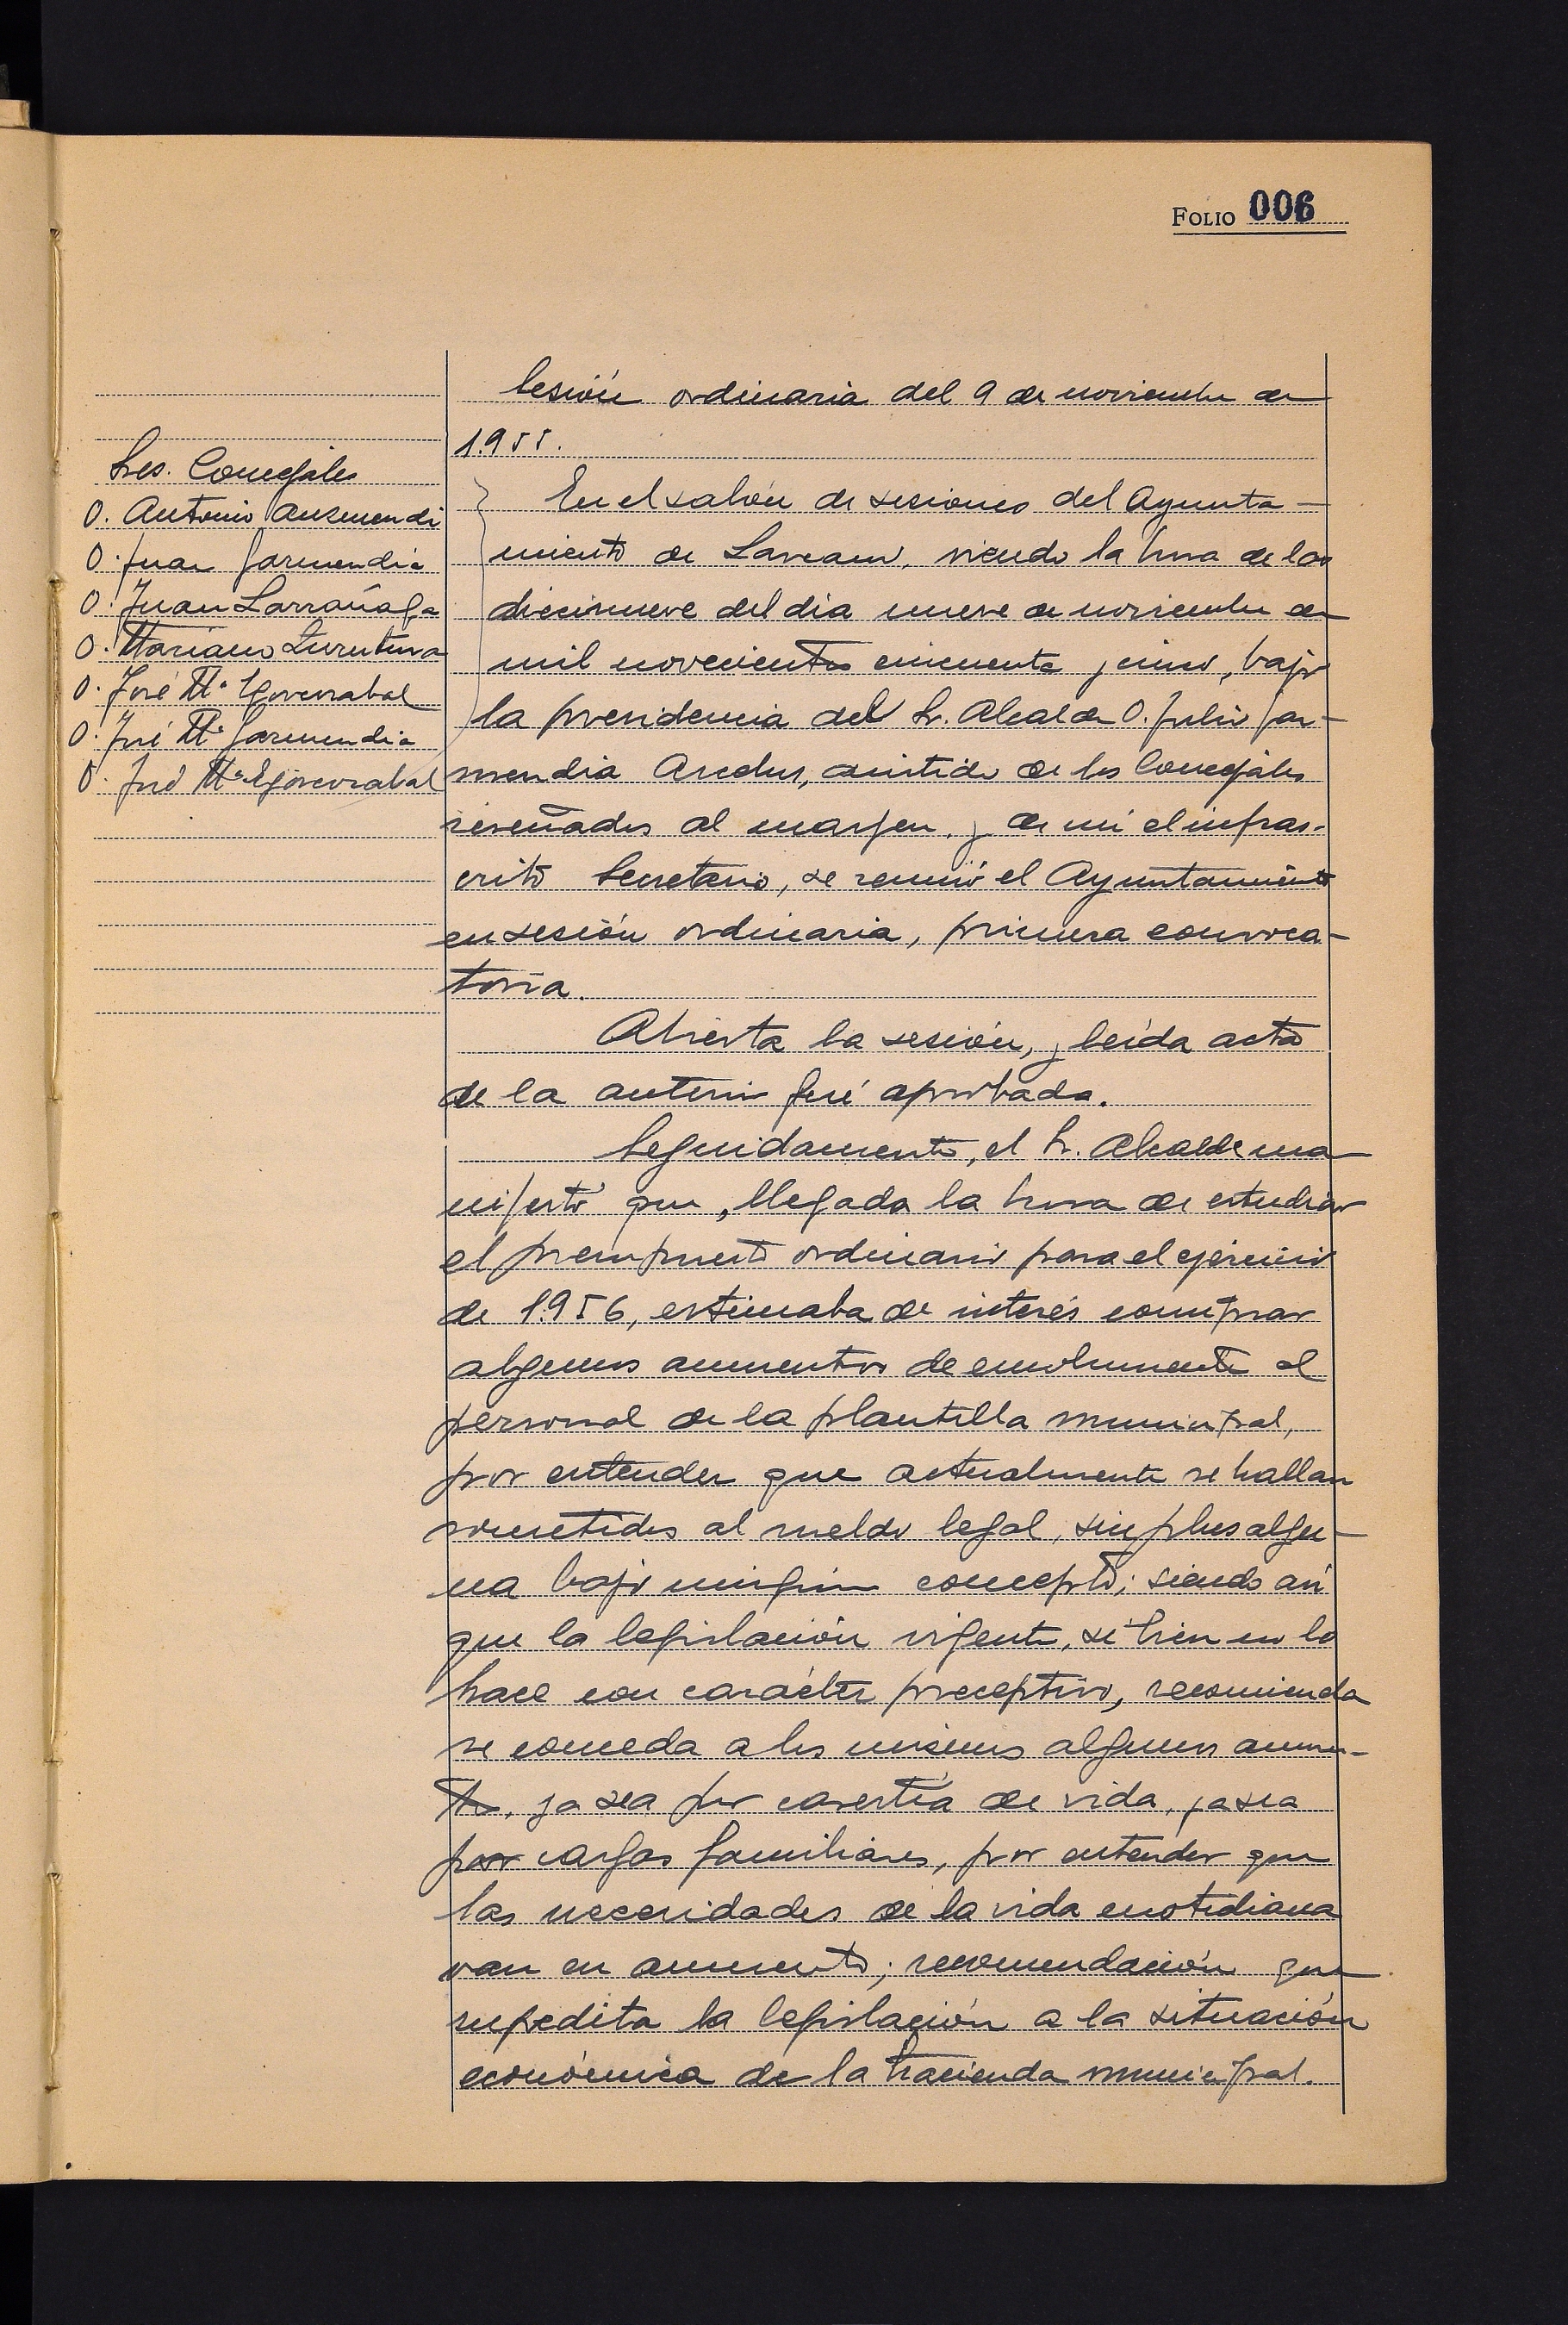 FOLIO 006
Sesión ordinaria del 9 de noviembre de
1.955.
Sres. Concejales
D. Antonio Auzmendi
D. Juan Garmendia
D. Juan Larrañaga
D. Mariano Zurutuza
D. José Mª Goicorrabal
D. José Mª Garmendia
D. José Mª
En el salón de sesiones del Ayunta-
miento de Larraun, siendo la hora de las
diecinueve del dia nueve de noviembre de
mil novecientos cincuenta y cinco, bajo
la presidencia del Sr. Alcalde D. Julio Gar-
mendia, asistido de los Concejales
reseñados al margen, y de mi el infras-
crito Secretario, se reunió el Ayuntamiento
en sesión ordinaria, primera convoca-
toria.
Abierta la sesión, y leída acta
de la anterior fué aprobada.
Seguidamente, el Sr. Alcalde ma-
nifestó que, llegada la hora de estudiar
el presupuesto ordinario para el ejercicio
de 1.956, estimaba de interés comprar
algunos aumentos de emolumento al
personal de la plantilla municipal,
por entender que actualmente se hallan
sometidos al sueldo legal, sin plus algu-
na bajo ningún concepto; siendo así
que la legislación vigente, si bien no lo
hace con carácter preceptivo, recomienda
se conceda a los mismos algunos aumen-
tos, ya sea por carestía de vida, ya sea
por cargas familiares, por entender que
las necesidades de la vida cuotidiana
van en aumento; recomendación que
supedita la legislación a la situación
económica de la hacienda municipal.